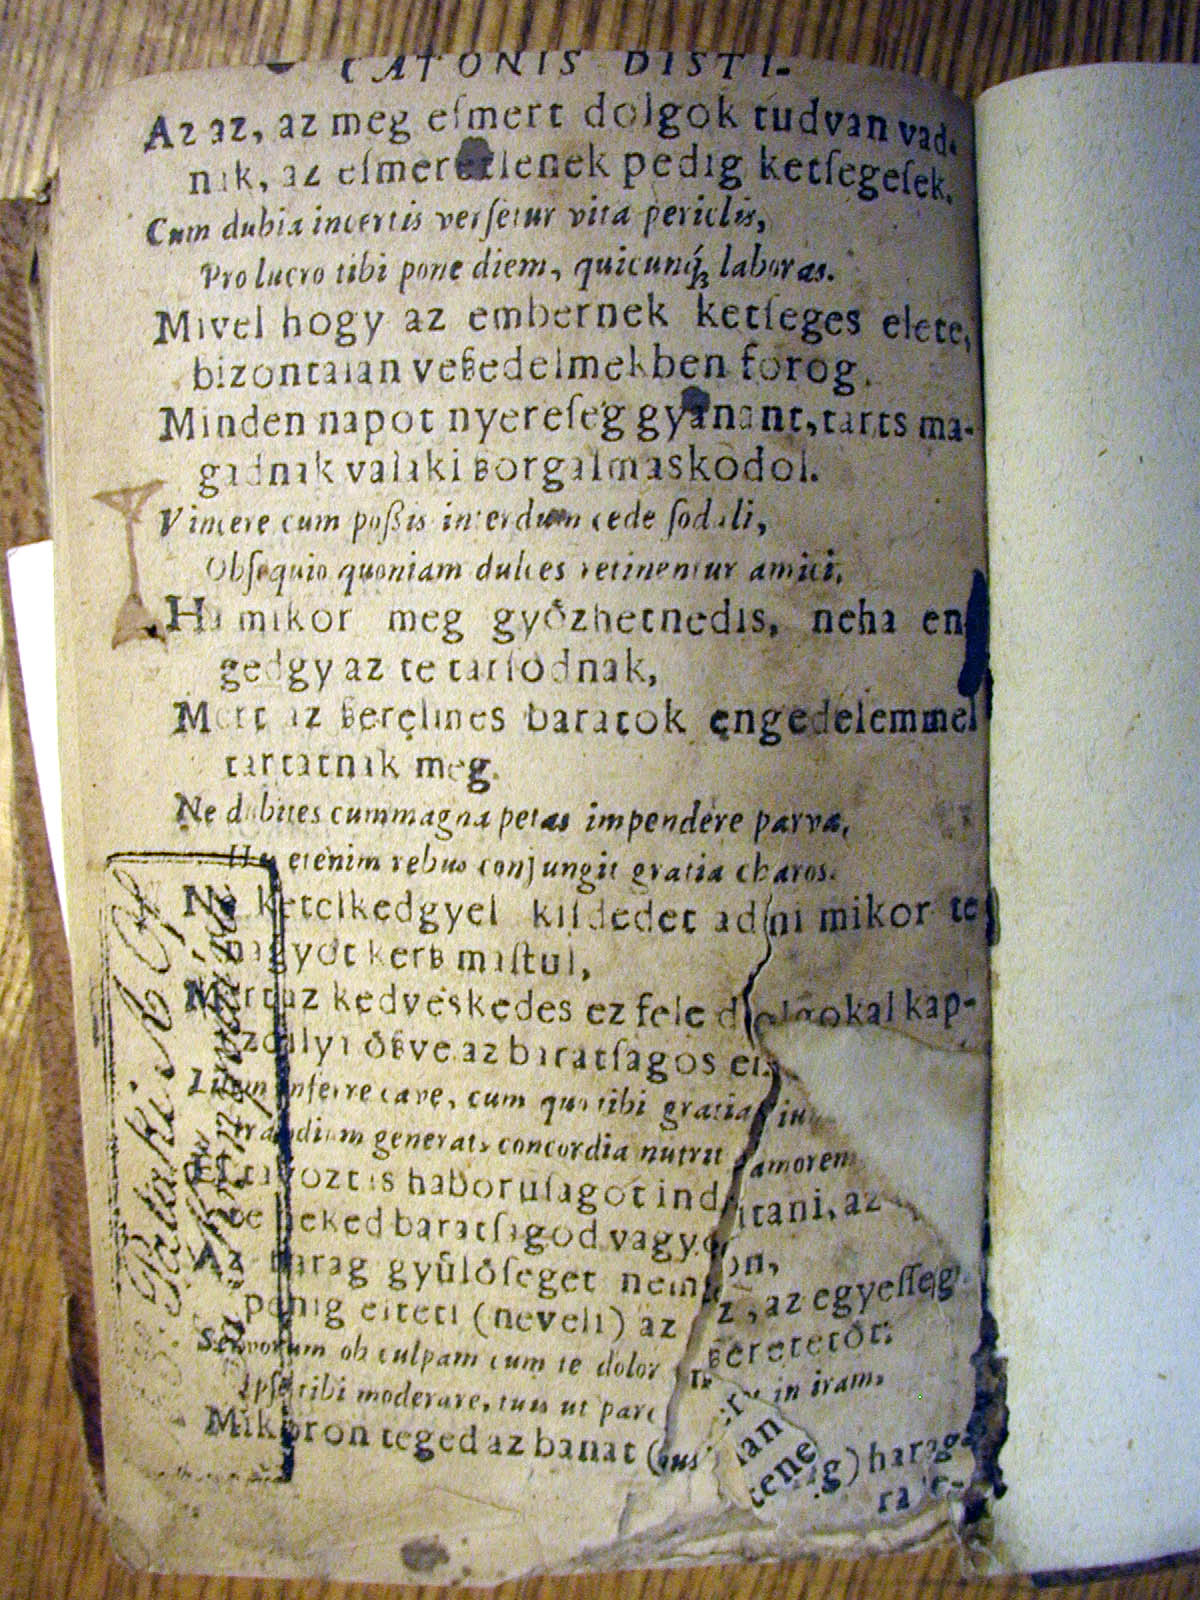 CATONIS DISTI-
Az az, az meg eſmert dolgok tudvan vad-
nak, az eſmeretlenek pedig ketſegeſek.
Cum dubia incertis verſetur vita periclis,
Pro lucro tibi pone diem, quicunq́ꝫ laboras.
Mivel hogy az embernek ketſeges elete,
bizontalan veßedelmekben forog.
Minden napot nyereſeg gyanant, tarts ma-
gadnak valaki ßorgalmaskodol.
Vincere cum poßis interdum cede ſodali,
Obſequio quoniam dulces retinentur amici.
Ha mikor meg gyözhetnedis, neha en
gedgy az te tarſodnak,
Mert az ßerelmes baratok engedelemmel
tartatnak meg.
Ne dubites cum magna petas impendere parva,
His etenim rebus conjungit gratia charos.
Ne ketelkedgyel kiſdedet adni mikor te
nagyot kerß maſtul,
Mert az kedveskedes ez fele dolgokal kap-
zollya ößve az baratſagos
Litem inferre cave, cum quo tibi gratia
generat, concordia nutrit amorem
El tavoztas haboruſagot inditani, az
te neked baratſagod vagyon,
Az harag gyülöſeget nemz, az egyeſſeg
penig elteti (neveli) az ßeretetöt.
Servorum ob culpam cum te dolor in iram,
Ipſe tibi moderare, tuis ut parc
Mikoron teged az banat harag-